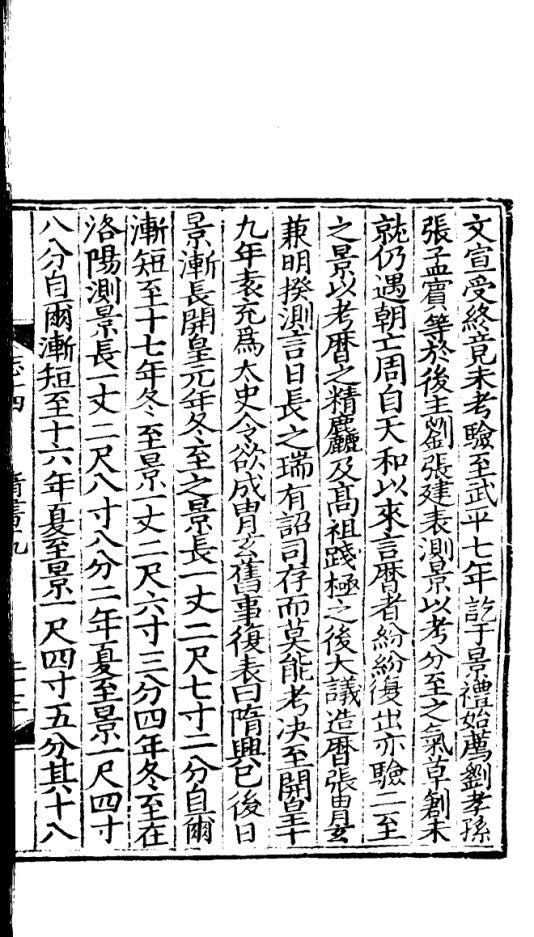 文宣受終竟未考驗至武平七年訖于景禮始薦劉孝孫
張孟賓等於後主劉張建表測景以考分至之氣草創未
就仍遇朝亡周自天和以來言曆者紛紛復出亦驗二至
之景以考曆之精麤及髙祖踐極之後大議造曆張胄玄
兼明揆測言日長之瑞有詔司存而莫能考决至開皇十
九年袁充爲太史令欲成胄玄舊事復表曰隋興已後日
景漸長開皇元年冬至之景長一丈二尺七寸二分自爾
漸短至十七年冬至景一丈二尺六寸三分四年冬至在
洛陽測景長一丈二尺八寸八分二年夏至景一尺四寸
八分自爾漸短至十六年夏至景一尺四寸五分其十八